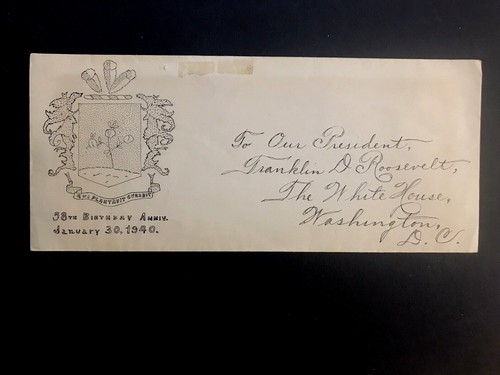 QUI PLANTAVIT CURABIT
58TH BIRTHDAY ANNIV.
January 30, 1940.
To Our President,
Franklin D. Roosevelt,
The White House,
Washington,
D. C.